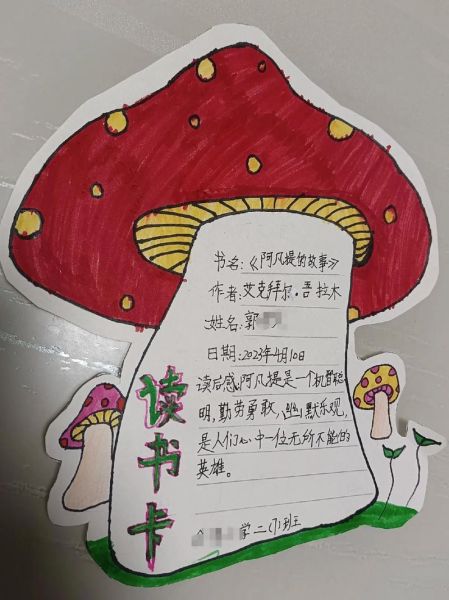 书名:《阿凡提的故事》
作者:艾克拜尔.吾拉木
姓名:郭
日期:2023年4月10日
读后感:阿凡提是一个机智聪
明,勤劳勇敢,幽默乐观,
是人们心中一位无所不能的
英雄。
学二(7)班王
读书卡